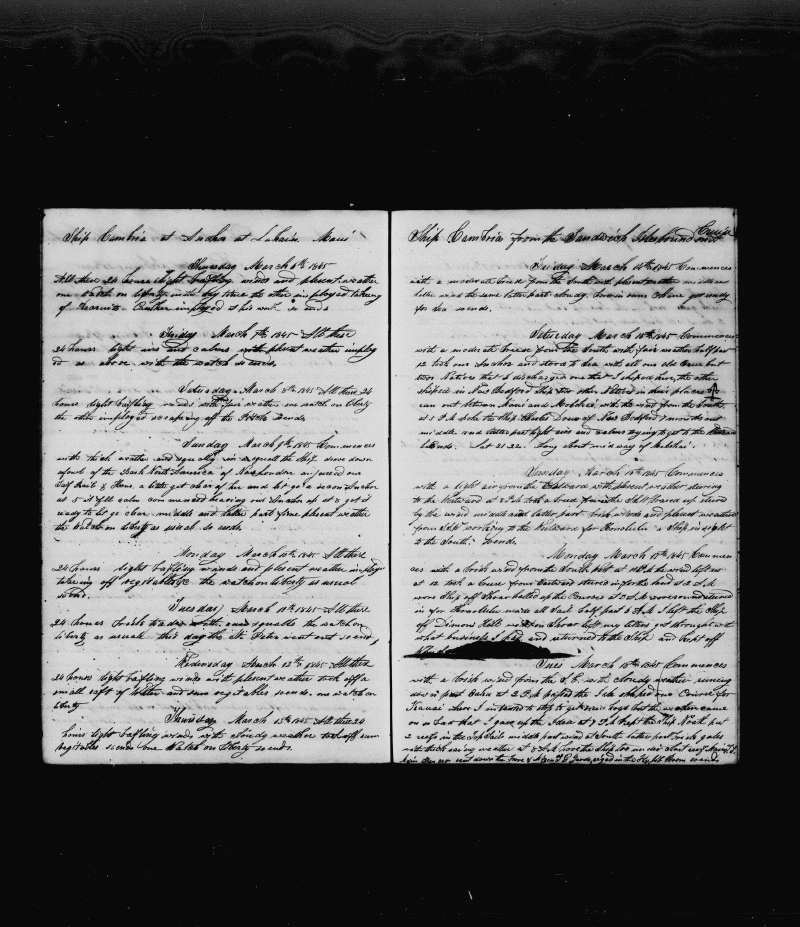 Ship Cambria at Anchor at Lahain Maui
Thursday March 6th 1845
All these 24 hours light baffling winds and plesent weather
one watch on liberty in the day time the other imployed taking
of Recruits Cooper imployed at his work so ends
Friday March 7th 1845 All these
24 hours light airs and calms with plesent weather imploy
ed as above with the watch as usual
Saturday March 8th 1845 All these 24
hours light baffling winds with fair weather one watch on liberty
the other imployed scraping off the so ends
Sunday March 9th 1845 Commences
with thick weather and squally in a squall the Ship drove down
afowl of the Bark North America of New London injured our
and let go a second Anchor
at 5 it fell calm commenced heaving our Anchor up at 8 got it
ready to let go clear middle and latter part fine plesent weather
the watch on liberty as usual so ends
Monday March 10th 1845 All these
24 hours light baffling winds and plesent weather imploy
taking off vegitables the watch on liberty as usual
Tuesday March 11th 1845 All these
24 hours fresh trades with some squalls the watch on
liberty as usual this day the St. Peter went out so ends
Wednesday March 12th 1845 All these
24 hours light baffling winds with plesent weather took off a
small raft of Water and sum vegitables so ends one watch on
liberty
Thursday March 13th 1845 All these 24
hours light baffling winds with cloudy weather took off sum
vegitables so ends one Watch on liberty so ends
Ship Cambria from the Sandwich Isles bound out Cruise
Friday March 14th 1845 Commences
with a moderate breeze from the South with plesent weather middle and
latter wind the same latter part cloudy got ready
for Sea so ends
Saturday March 15th 1845 Commences
with a moderate breeze from the South with fair weather half past
12 took our Anchor and stood to Sea with all our old Crew but
two Natives that I discharged one that I shiped here the other
shiped in New Bedford Ship two other Natives in their places
ran out between Maui and Molokai with the wind from the South
at 5 P.M. spoke the Ship Charles Drew of New Bedford
middle and latter part light airs and calms trying to get to the
so ends. Lat 21.22. Long about mid way of Molokai
Sunday March 16th 1845 Commences
with a light air from the Eastward with plesent weather steering
to the Westward at 8 P.M. took a breeze from the
by the wind middle and latter part fresh winds and plesent weather
from working to the Windward for Honolulu a Ship in sight
to the South so ends
Monday March 17th 1845 Commen
ces with a fresh wind from the South West at the wind left us
at 12 took a breeze from Eastward steered in for the land at 2 A.M.
wore Ship off Shore halled up the Courses at 3 A.M. wore round steered
in for Honolulu made all sail half past 6 A.M. I left the Ship
off Dimond Hill went on Shore left my letters got through with
what business I had and returned to the Ship and kept off
Tues March 18th 1845 Commences
with a brisk wind from the S.E. with cloudy weather running
down in past Oahu at 2 P.M. passed the Isle shaped our Course for
Kauai where I intended to stop to get some hogs but the weather came
on so bad that I gave up the Idea at 7 P.M. kept the Ship North put
2 reefs in the Top Sails middle part wind at South latter part fresh gales
with thick rainy weather at 8 A.M. hove the Ship too under close reef Main T.